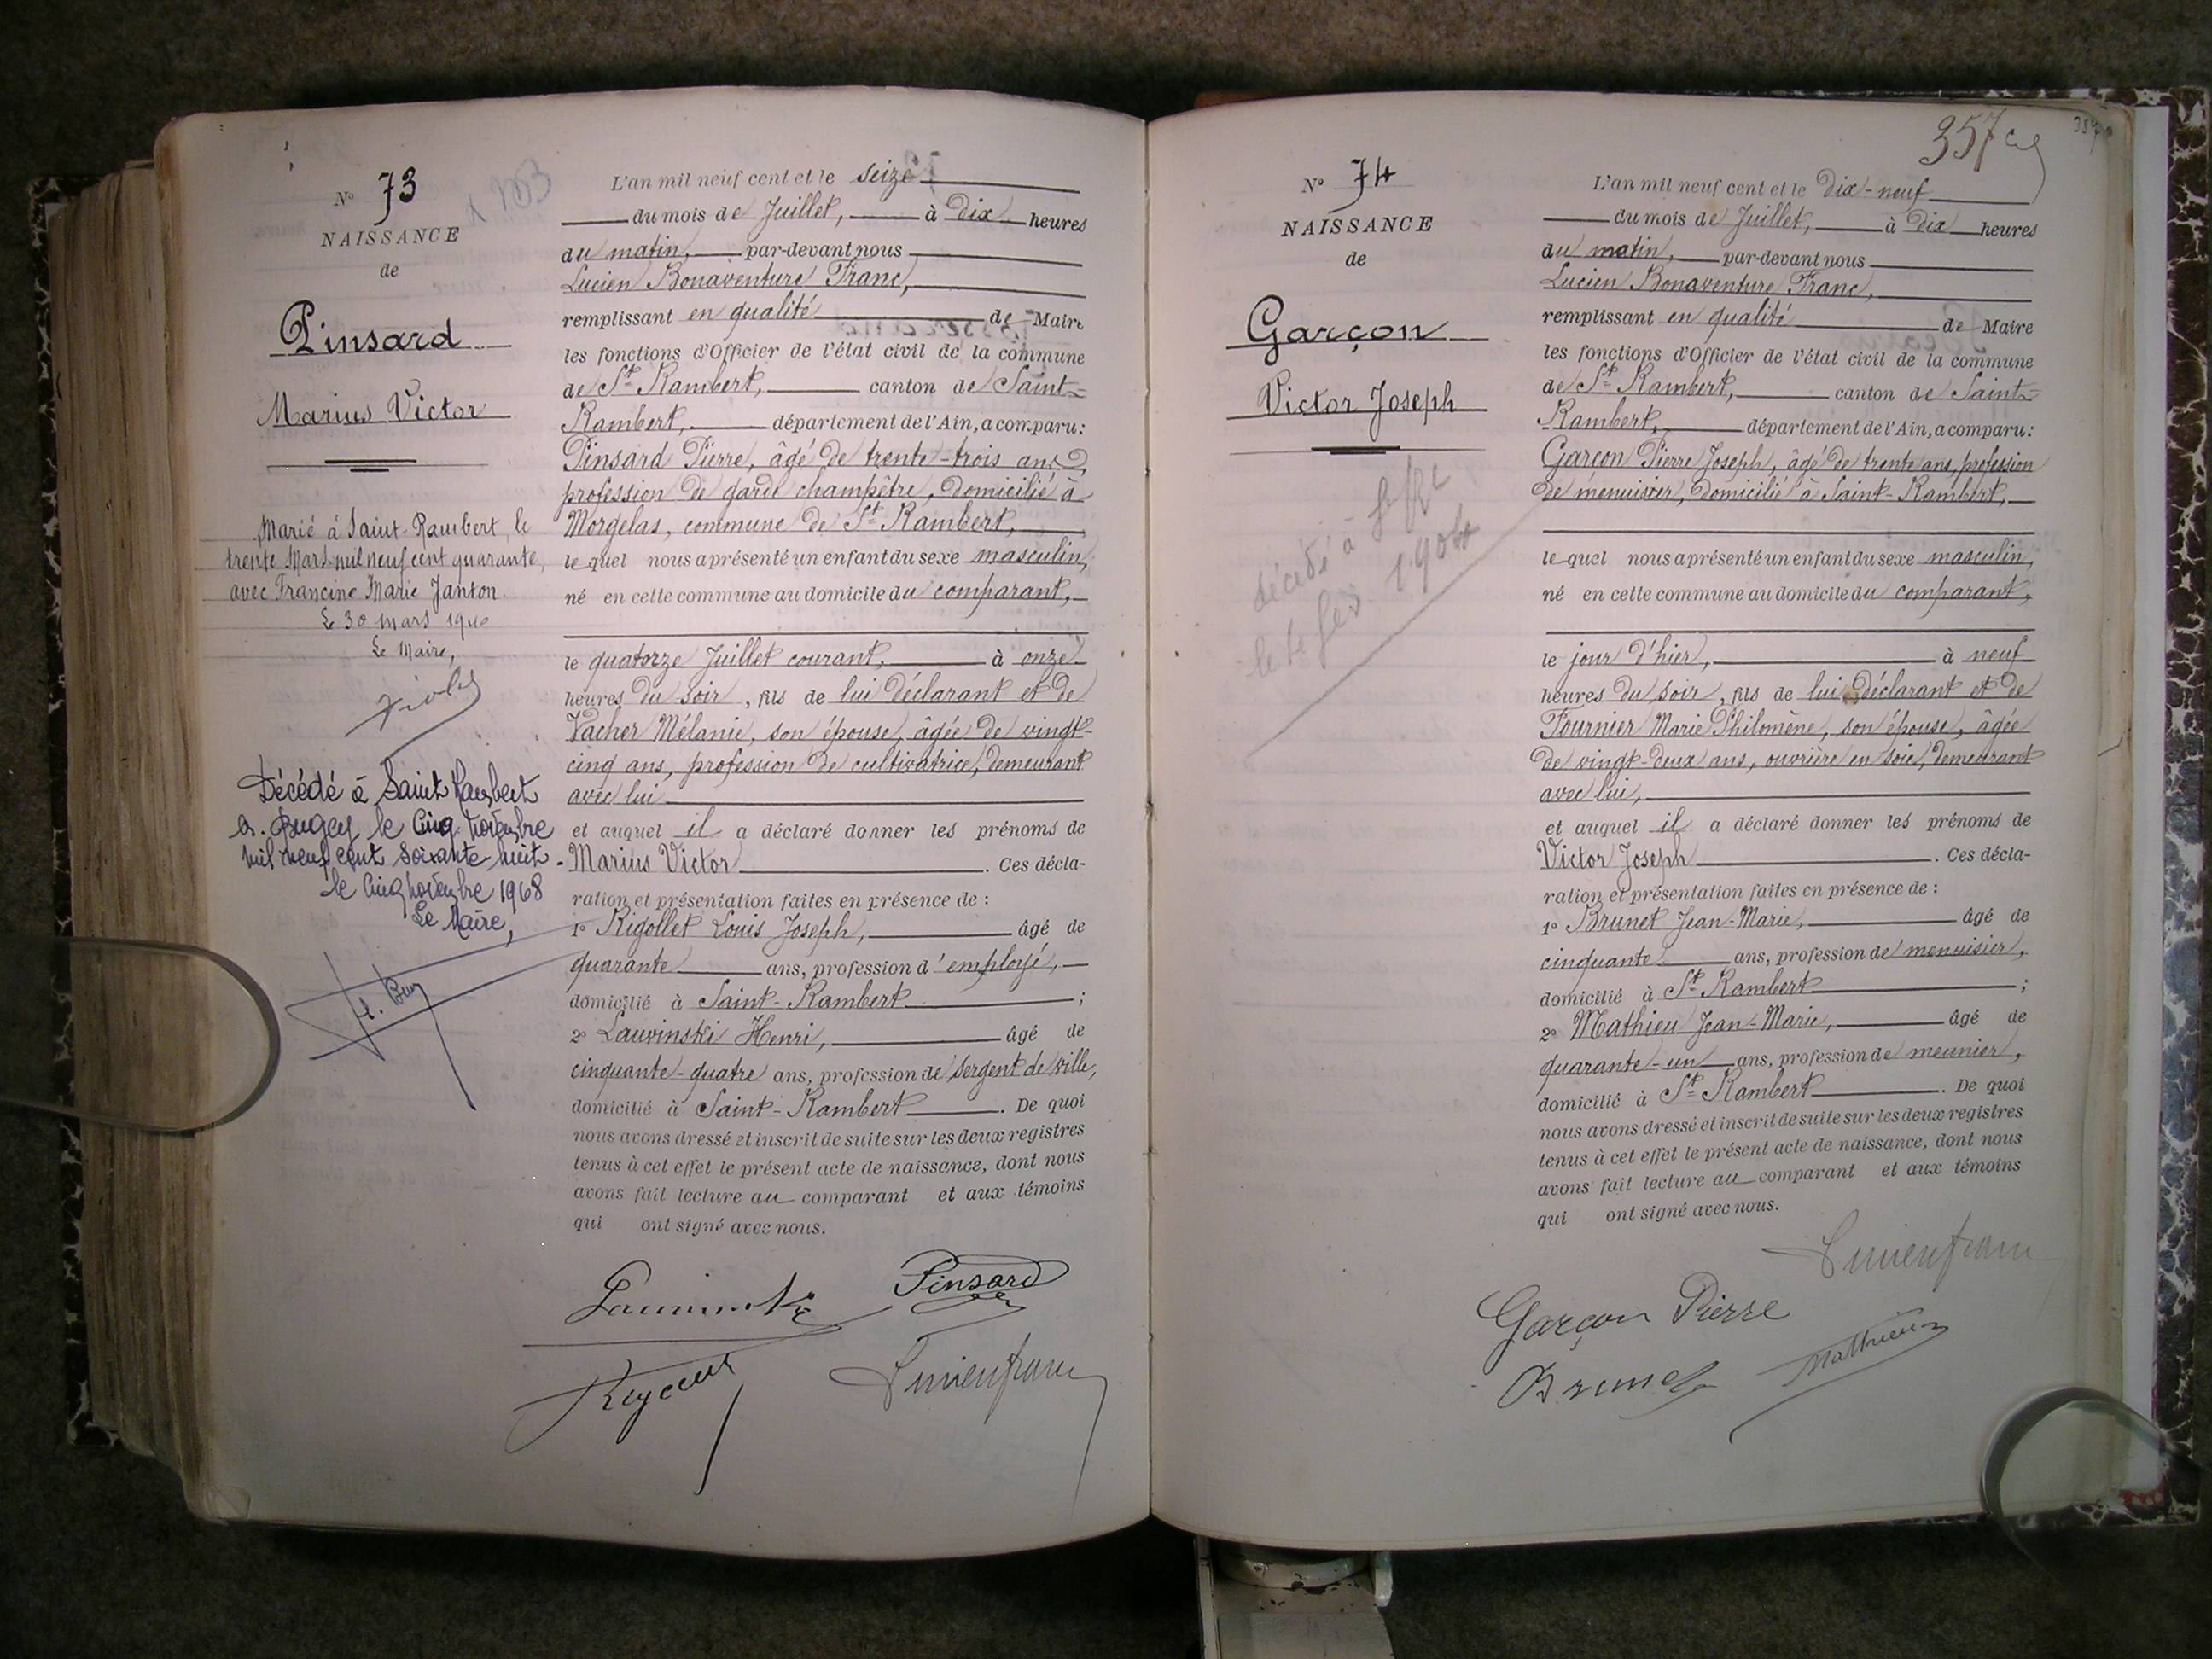 N° 73
NAISSANCE
de
Pinsard
Marius Victor
Marié à Saint-Rambert, le
trente Mars mil neuf cent quarante,
avec Francine Marie Janton
Le 30 mars 1940
Le Maire,
Décédé à Saint Rambert
en Bugey le Cinq novembre
mil neuf cent soixante-huit
le Cinq novembre 1968
Le Maire,
L'an mil neuf cent et le seize
du mois de Juillet, à Dix heures
du matin, par-devant nous
Lucien Bonaventure Franc,
remplissant en qualité de Maire
les fonctions d'Officier de l'état civil de la commune
de St Rambert, canton de Saint-
Rambert, département de l'Ain, a comparu :
Pinsard Pierre, âgé de trente-trois ans,
profession de garde champêtre, domicilié à
Morgelas, commune de St Rambert,
lequel nous a présenté un enfant du sexe masculin,
né en cette commune au domicile du comparant,
le quatorze Juillet courant, à onze
heures du soir, fils de lui déclarant et de
Vacher Mélanie, son épouse, âgée de vingt-
cinq ans, profession de cultivatrice, demeurant
avec lui
et auquel il a déclaré donner les prénoms de
Marius Victor. Ces décla-
ration et présentation faites en présence de :
1° Rigollet Louis Joseph, âgé de
quarante ans, profession d'employé,
domicilié à Saint-Rambert ;
2° Lauvinski Henri, âgé de
cinquante-quatre ans, profession de sergent de ville,
domicilié à Saint-Rambert. De quoi
nous avons dressé et inscrit de suite sur les deux registres
tenus à cet effet le présent acte de naissance, dont nous
avons fait lecture au comparant et aux témoins
qui ont signé avec nous.
Pinsard
Lucien franc
357
N° 74
NAISSANCE
de
Garçon
Victor Joseph
décédé à St Rt
le 14 fév. 1904
L'an mil neuf cent et le Dix-neuf
du mois de Juillet, à Dix heures
du matin, par-devant nous
Lucien Bonaventure Franc,
remplissant en qualité de Maire
les fonctions d'Officier de l'état civil de la commune
de St Rambert, canton de Saint-
Rambert, département de l'Ain, a comparu :
Garçon Pierre Joseph, âgé de trente ans, profession
de menuisier, domicilié à Saint-Rambert,
lequel nous a présenté un enfant du sexe masculin,
né en cette commune au domicile du comparant,
le jour d'hier, à neuf
heures du soir, fils de lui déclarant et de
Fournier Marie Philomène, son épouse, âgée
de vingt-deux ans, ouvrière en soie, demeurant
avec lui,
et auquel il a déclaré donner les prénoms de
Victor Joseph. Ces décla-
ration et présentation faites en présence de :
1° Brunet Jean-Marie, âgé de
cinquante ans, profession de menuisier,
domicilié à St Rambert ;
2° Mathieu Jean-Marie, âgé de
quarante-un ans, profession de meunier,
domicilié à St Rambert. De quoi
nous avons dressé et inscrit de suite sur les deux registres
tenus à cet effet le présent acte de naissance, dont nous
avons fait lecture au comparant et aux témoins
qui ont signé avec nous.
Lucien franc
Garçon Pierre
Brunet Mathieu